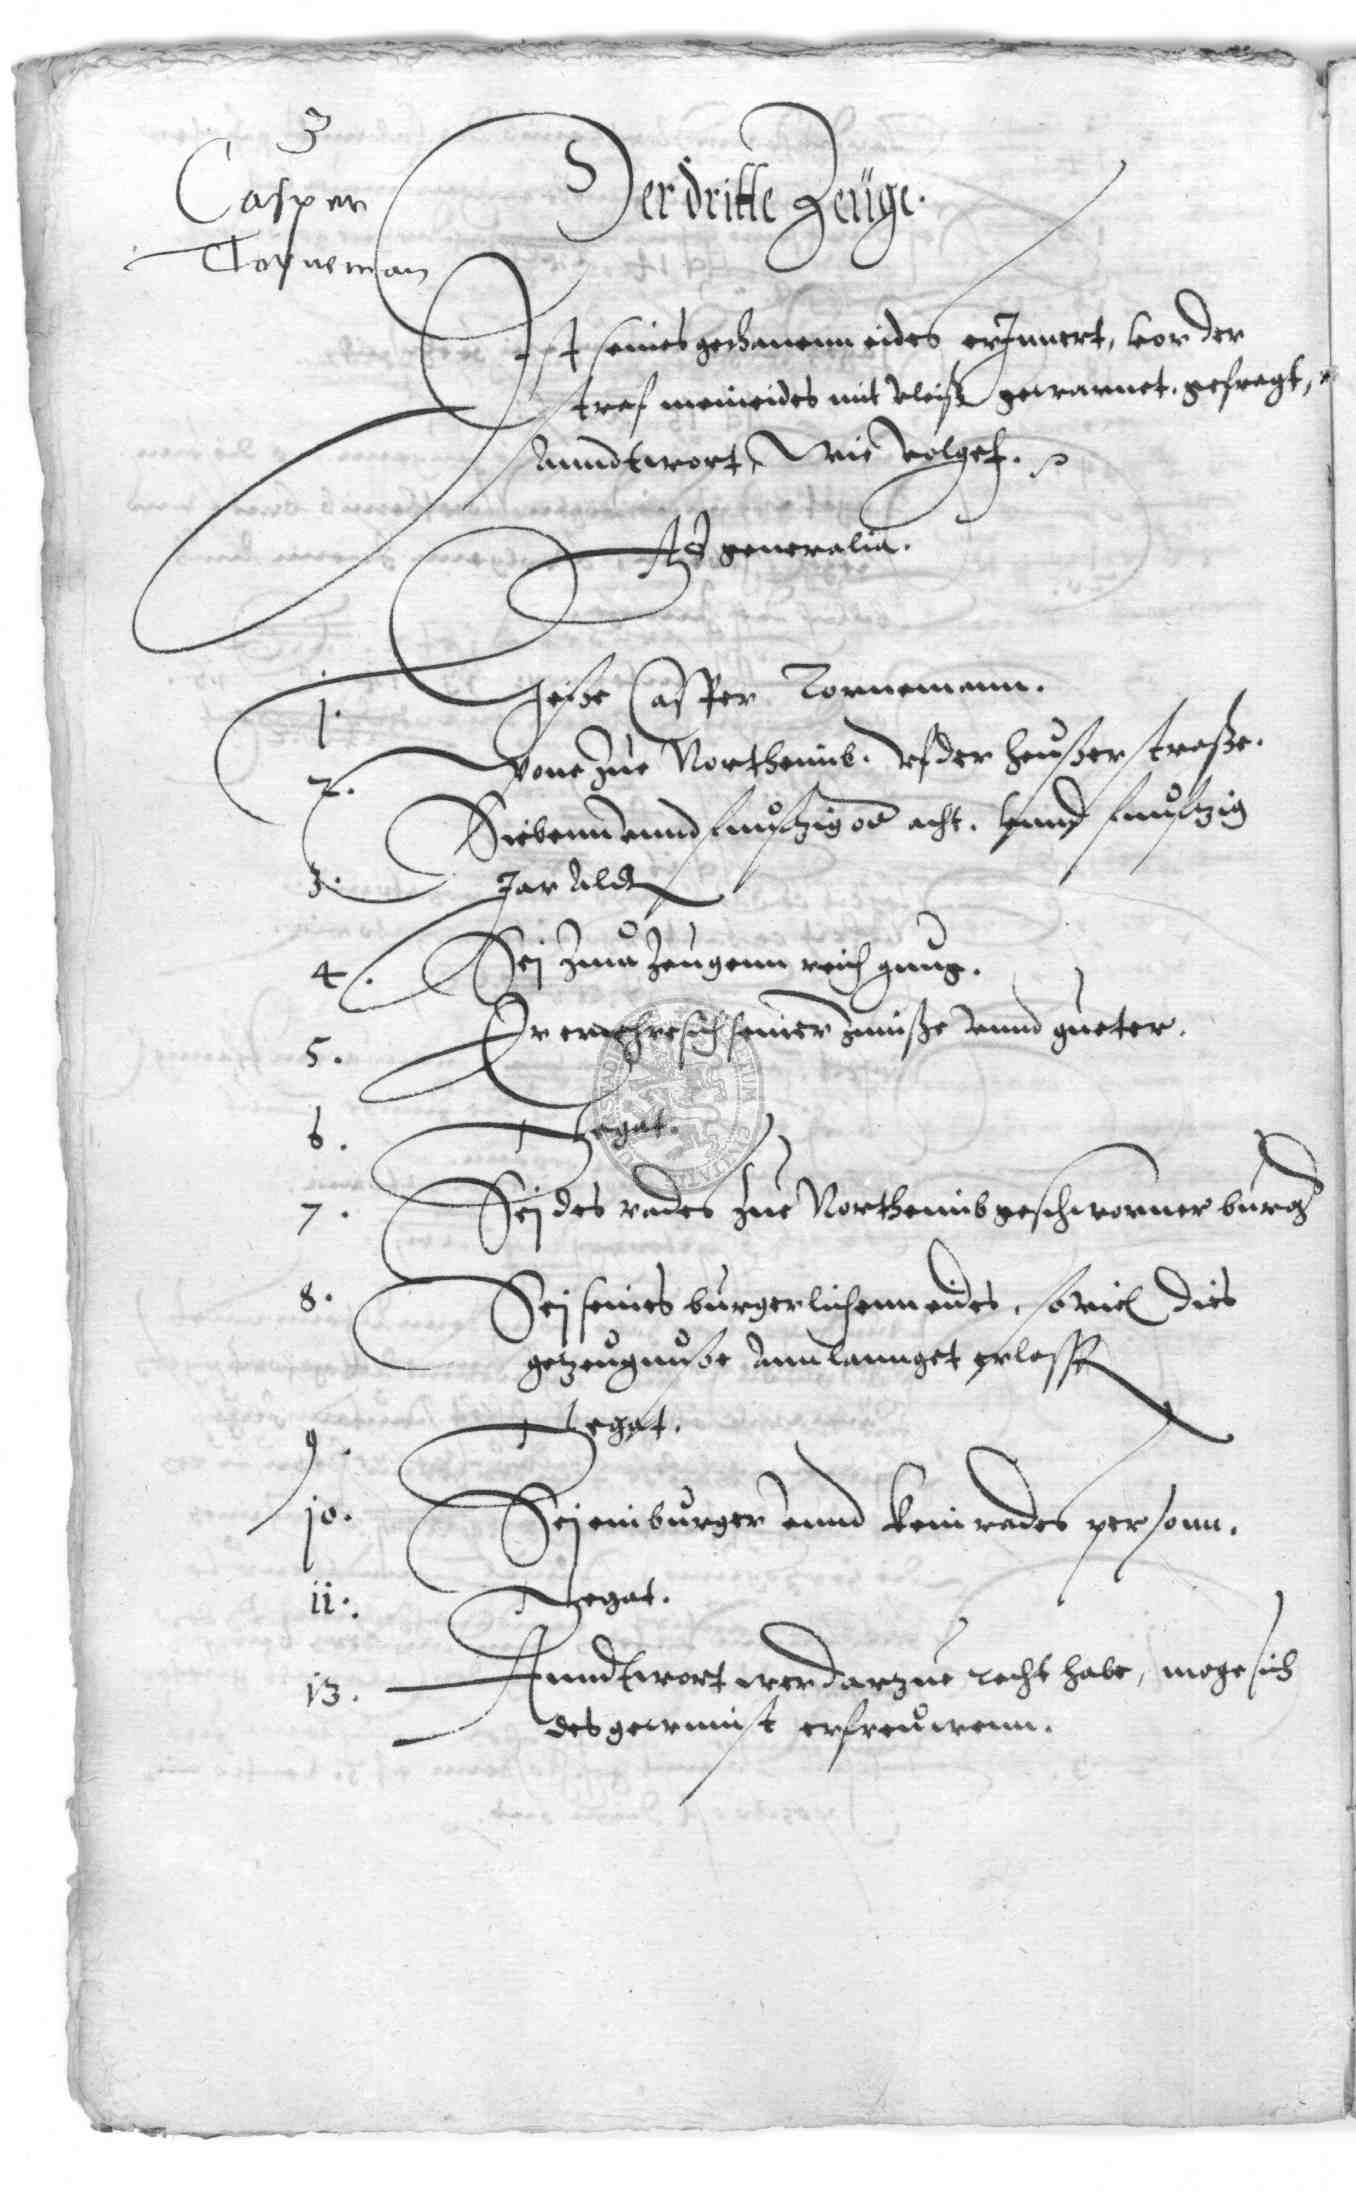 3
Casper
Torneman
Der dritte Zeüge.
Ist seines gethanenn eides erJnnert, vor der
straf meineides mit vleiß gewarnet, gefragt,
Anndtwort, Wie volget.
Ad generalia.
1. Heiße Casper Tornemann.
2. Wone zue Northeimb. vf der heußer straße.
Siebenn vnnd funftzig od acht. vnnd funftzig
3. Jar Aldt
4. Sej Zum Zeugenn reich gnug.
5. Er ernehre sich seiner Zinße vnnd gueter.
6. Negat.
7. Sej des rades Zue Northeimb geschworner burg
8. Sej seines burgerlichenn eides, so viel dies
getzeugnuße Annlannget erlasst
9. Negat.
10. Sej ein burger vnnd kein rades personn.
11. Negat.
13. Anndtwort wer darzue recht habe, moge sich
des gewinst erfreuwenn.